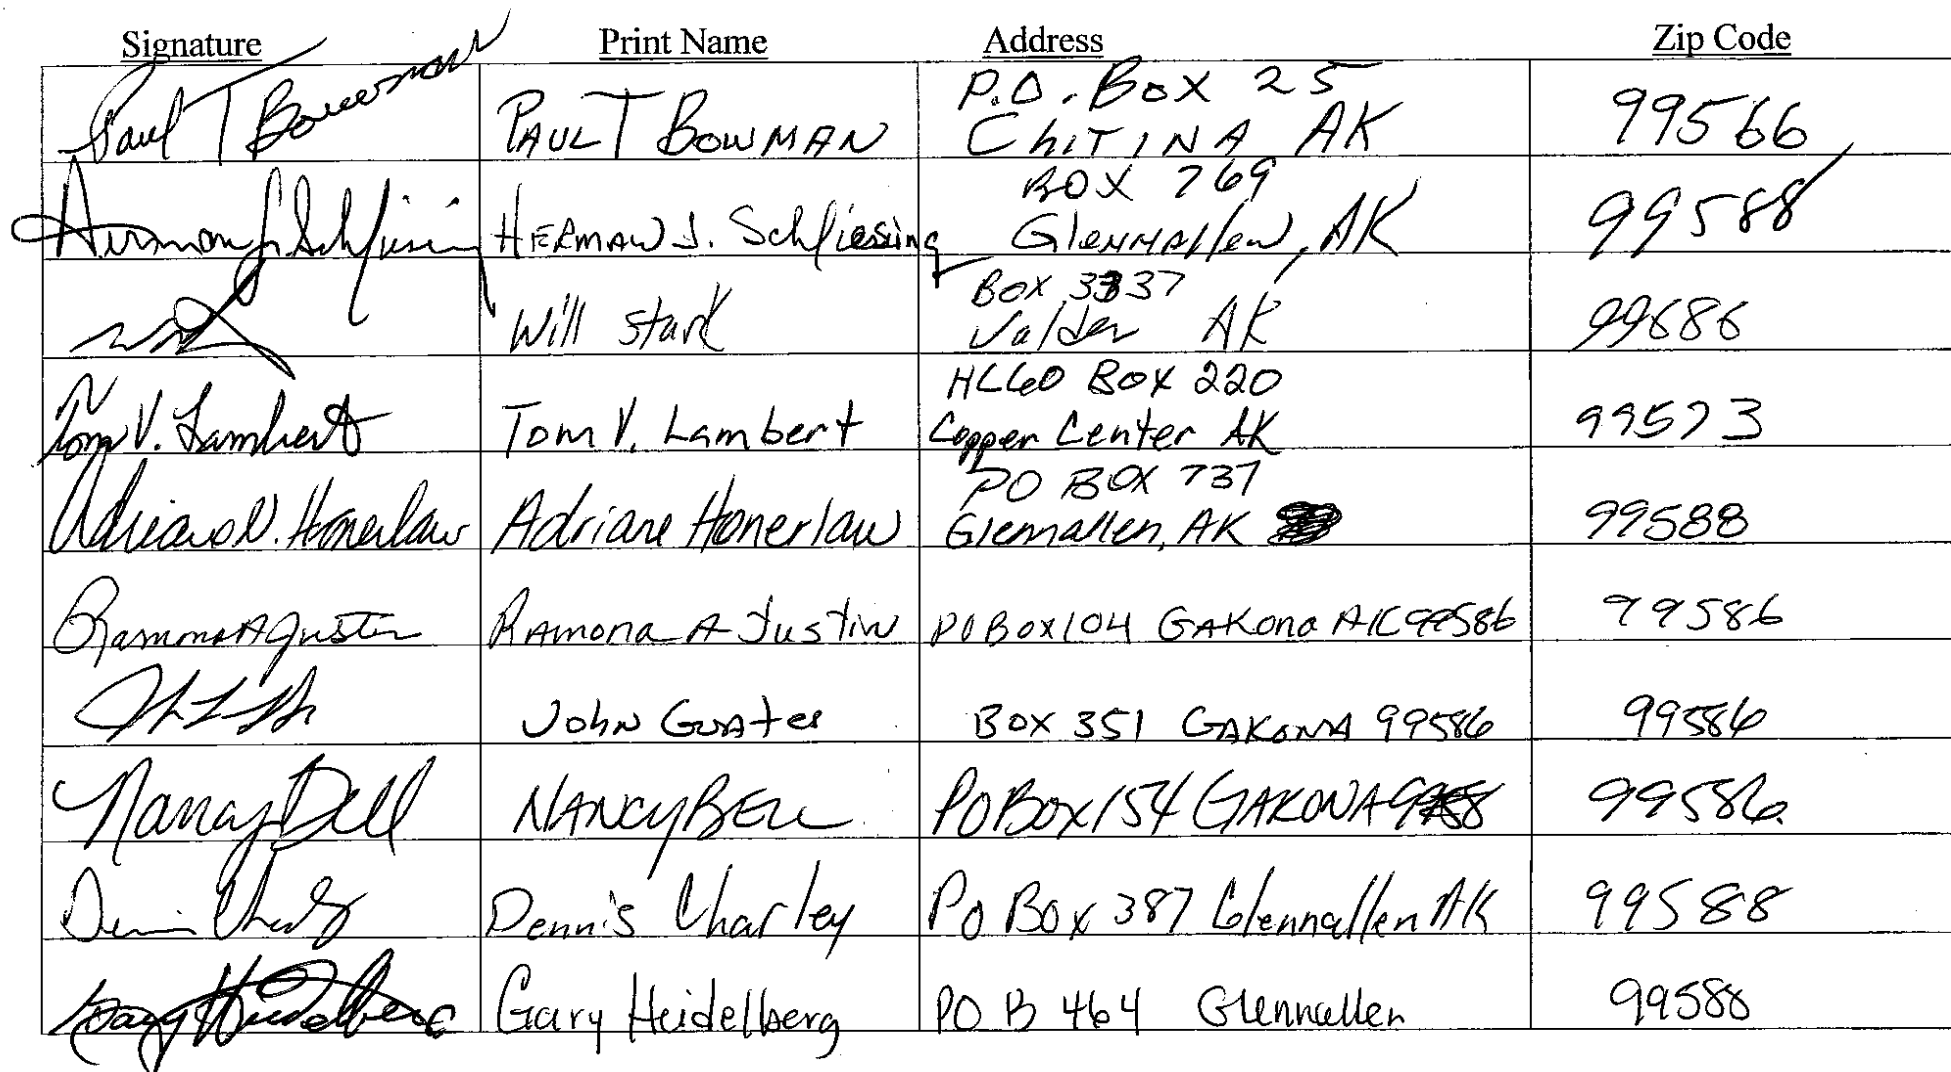 Signature Print Name Address Zip Code
P.O. Box 25
Paul T Bowman PAUL T BOWMAN CHITINA AK 99566
BOX 769
Herman J. Schliesing HERMAN J. Schliesing Glennallen, AK 99588
BOX 3337
Will Stark Valdez AK 99686
HC60 BOX 220
Tom V. Lambert Tom V. Lambert Copper Center AK 99573
PO BOX 737
Adriane N. Honerlaw Adriane Honerlaw Glennallen, AK 99588
Ramona A Justin Ramona A Justin PO Box 104 GAKona AK 99586 99586
JOHN BOX 351 GAKONA 99586 99586
Nancy Bell NANCY BELL PO BOX 154 GAKONA 99586
Dennis Charley Dennis Charley PO Box 387 Glennallen AK 99588
Gary Heidelberg Gary Heidelberg PO B 464 Glennallen 99588